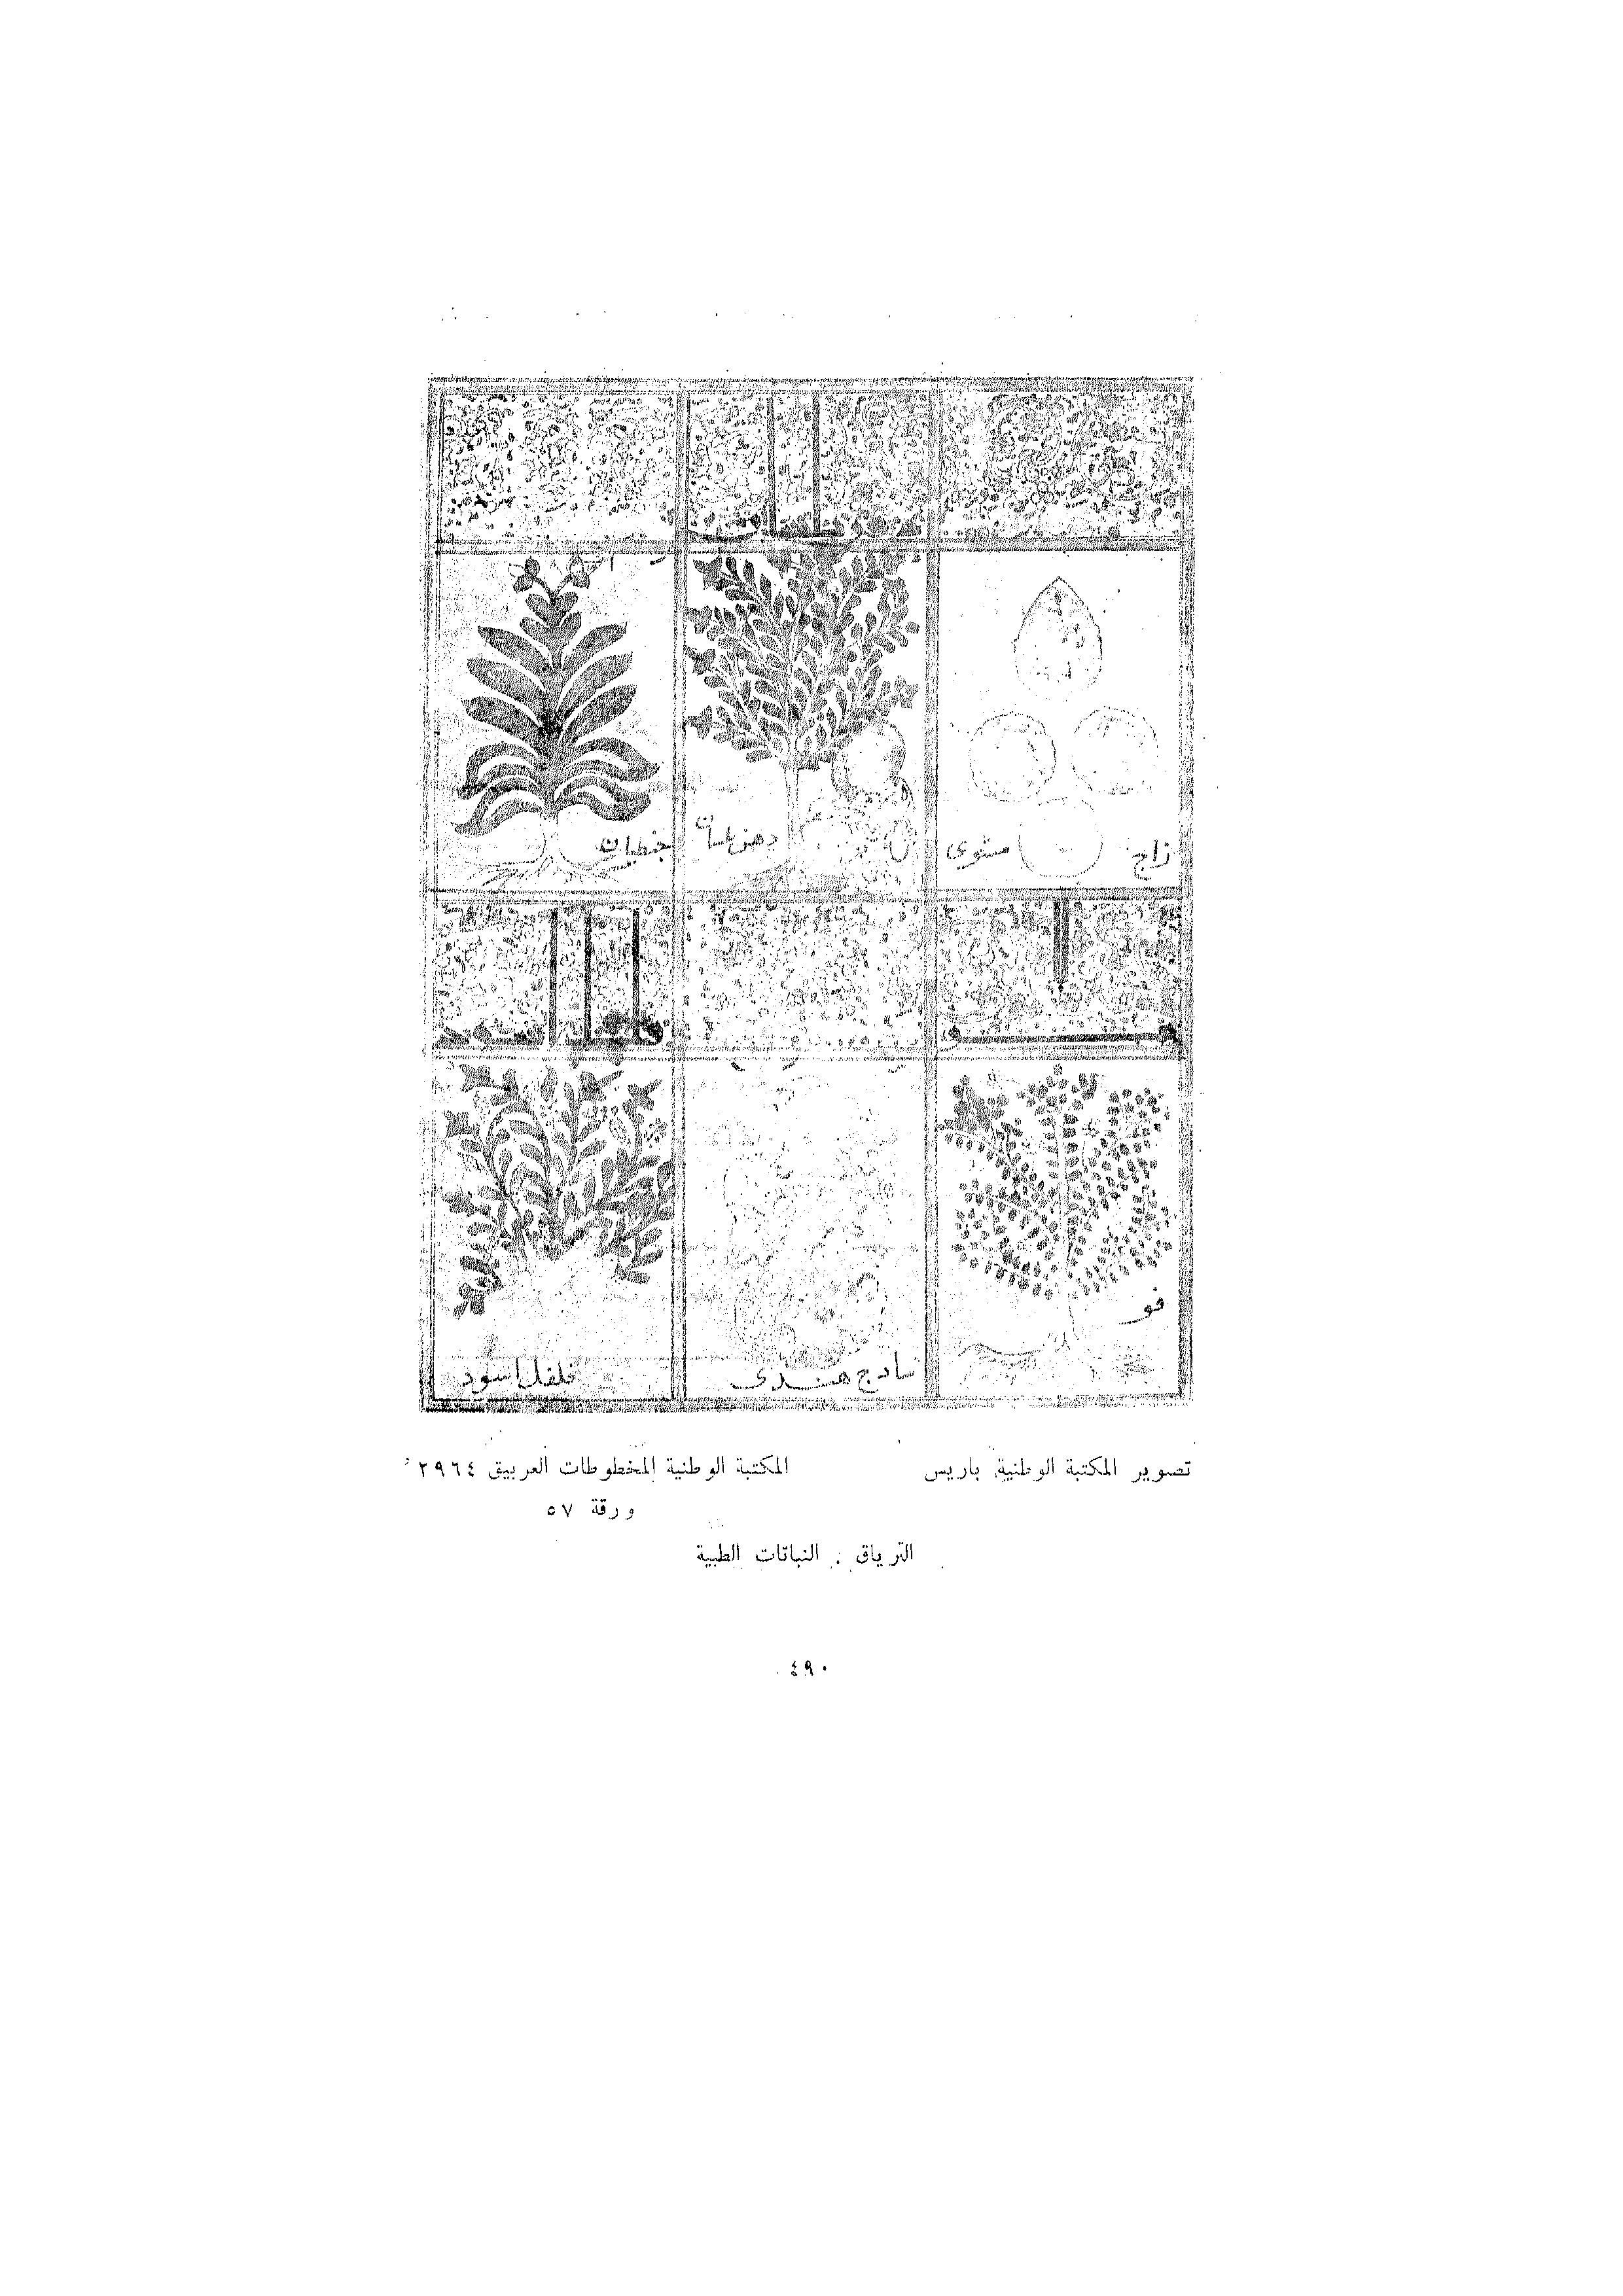 زاج مشوى
دهن بلسان
جنطيان
فو
سادج هندى
فلفل اسود
تصوير المكتبة الوطنية باريس
المكتبة الوطنية المخطوطات العربيق ٢٩٦٤،
ورقة ٥٧
الترياق : النباتات الطبية
٤٩٠